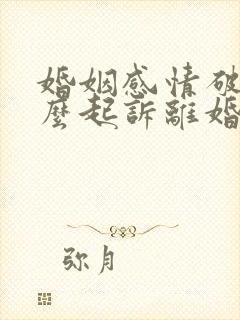 婚姻感情破
麼起訴離婚
弥月